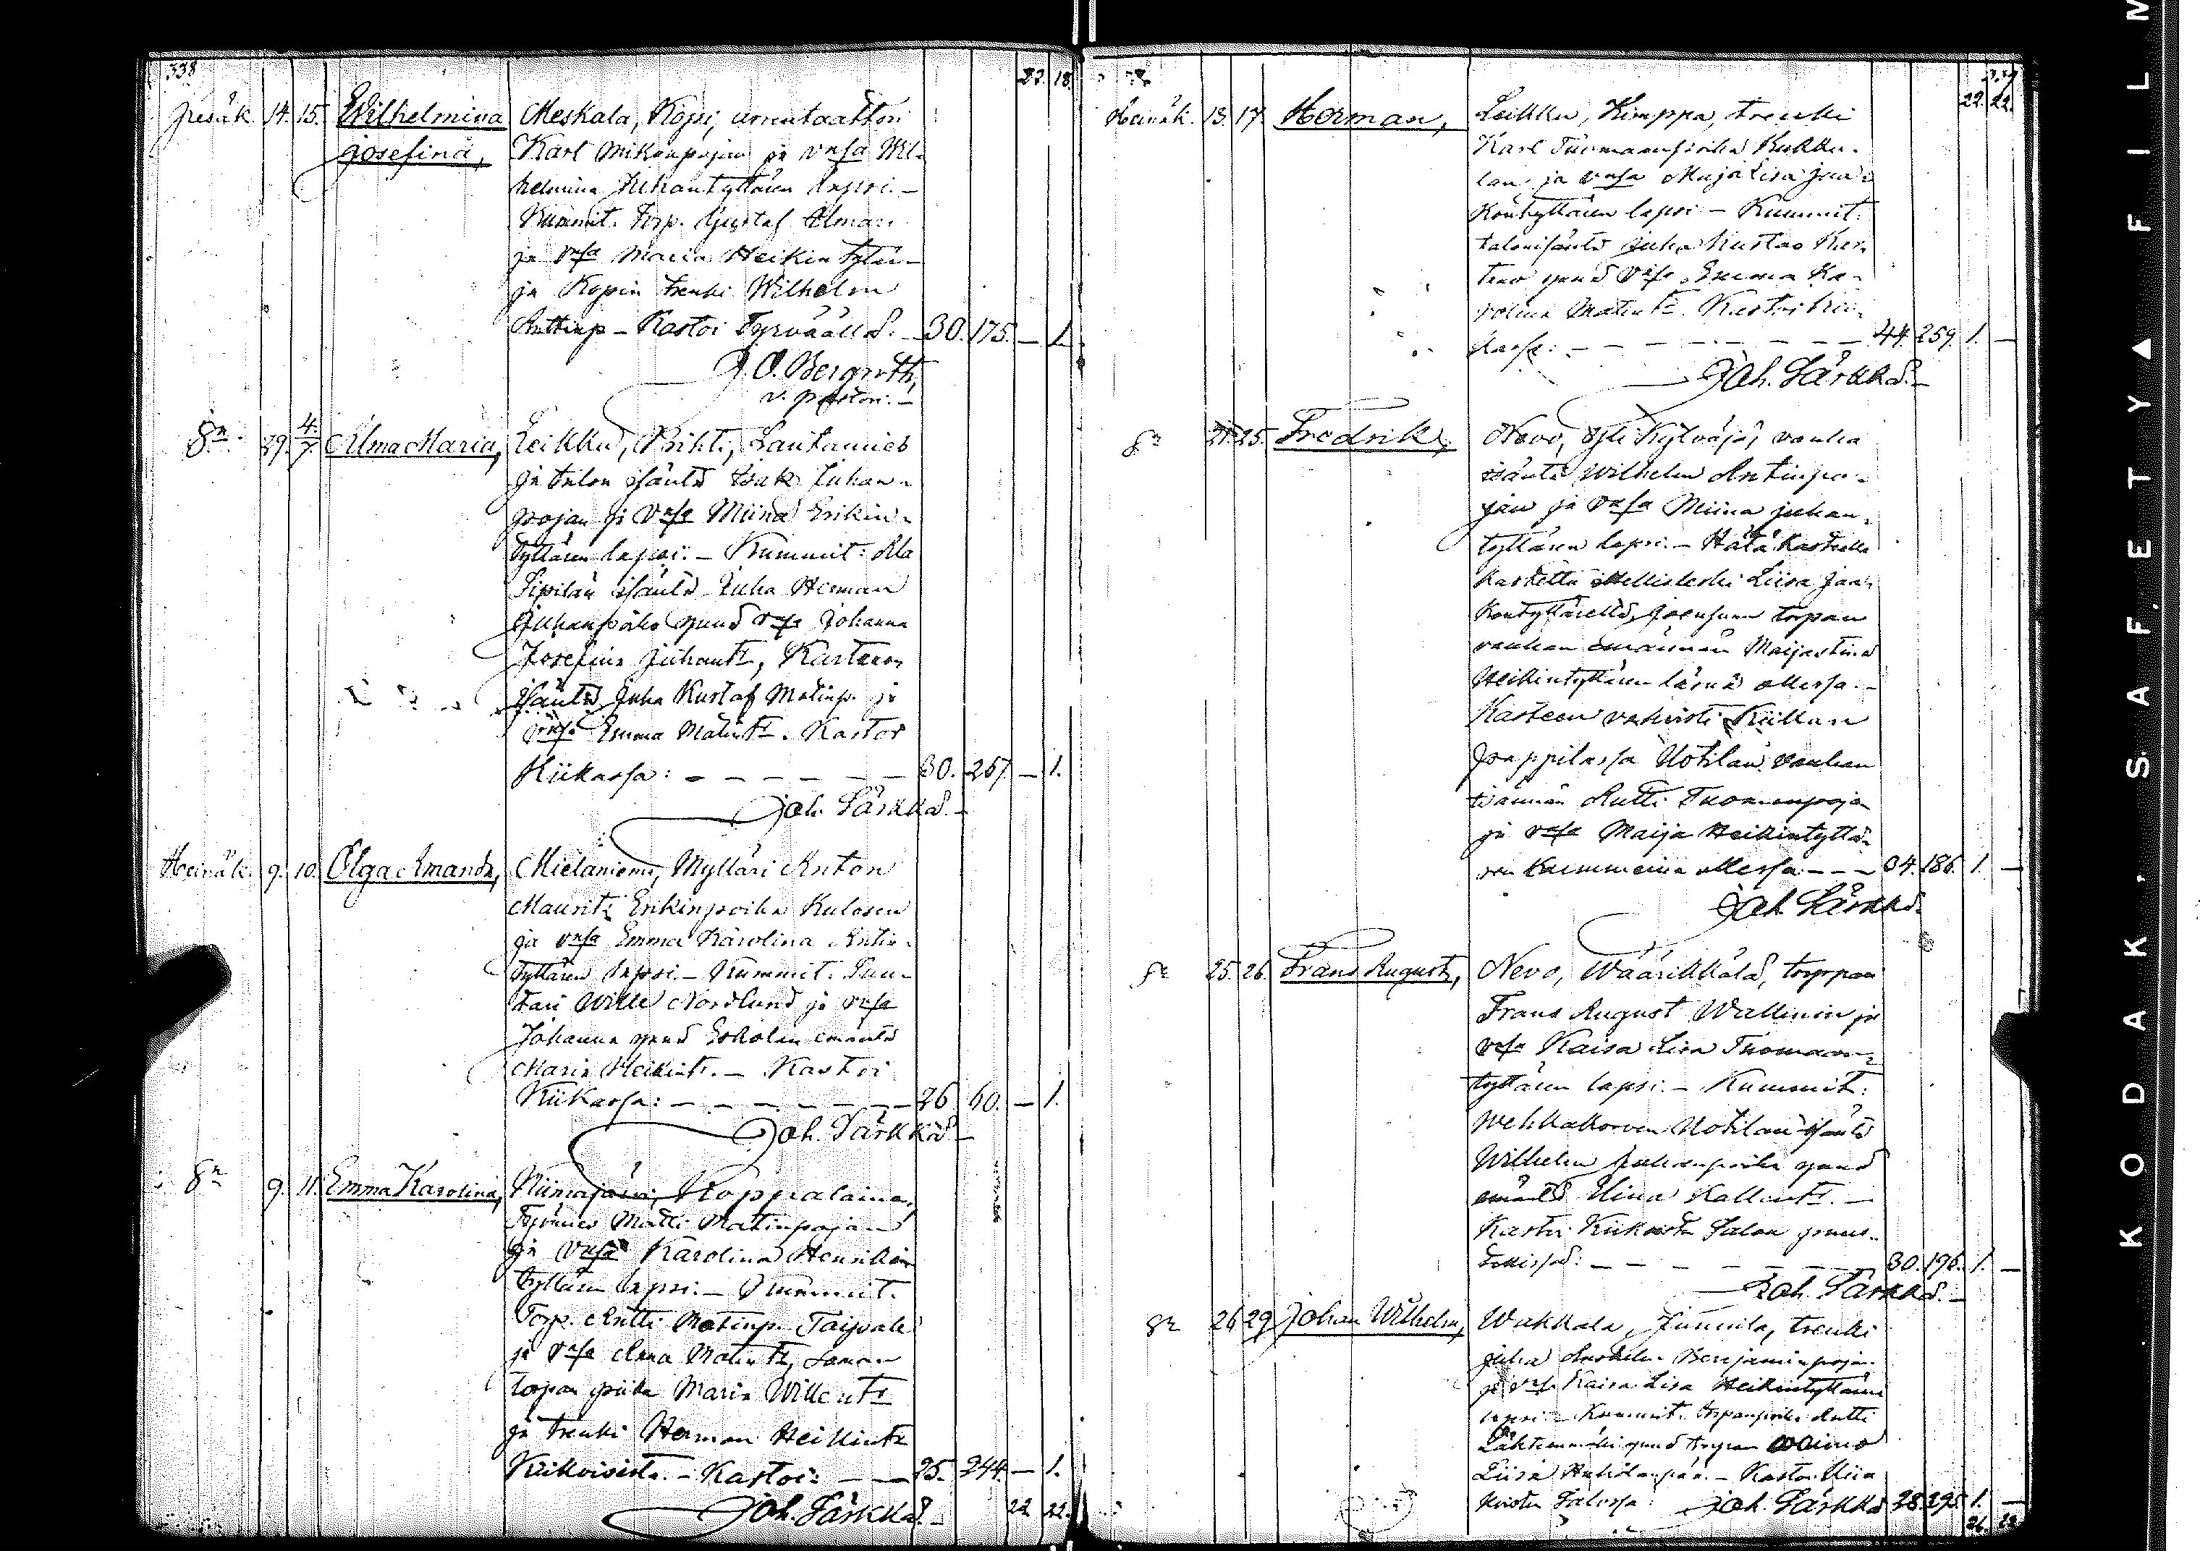 338
22. 18.
Kesäk. 14. 15. Wilhelmina Meskala, Kopsi,
Josefina, Karl Mikonpojan ja vmsa Wil-
helmina Juhantyttären lapsi. -
Kummit. Torp. Gustaf
ja vmsa Maria Heikintytär
ja Kopsin trenki Wilhelm
Anttinp - Kastoi Tyrväällä. - 30. 175. - 1.
J. O. Bergroth,
v. pastori. -
Sn. 29. 4/7. Alma Maria, Leikku, Prihti, Lautamies
ja talon isäntä Isak Juhan-
pojan ja vmsa Miina Erikin-
tyttären lapsi. - Kummit: Ala
Sipilän isäntä Juha Herman
Juhanpoika ynnä vmsa Johanna
Josefina Juhantr, Kustaan
isäntä Juha Kustaf Matinp. ja
vmsa Emma Matintr. Kastoi
Kiikassa: - - - - - - 30. 257. - 1.
Joh. Särkkä. -
Heinäk. 9. 10. Olga Amanda, Mielaniemi, Mylläri Anton
Mauritz Erikinpoika Kulosen
ja vmsa Emma Karolina Antin-
tyttären lapsi. - Kummit. Suu-
tari Wille Nordlund ja vmsa
Johanna ynnä Eskolan emäntä
Maria Heikintr. - Kastoi
Kiikassa: - - - - - - 26 60. - 1.
Joh. Särkkä -
Sn 9. 11. Emma Karolina, Kiimajärvi, Koppalaina,
Työmies Matti Matinpojan
ja vmsa Karolina Henrikin
tyttären lapsi. - Kummit.
Torp. Antti Matinp. Taipale
ja vmsa Anna Matintr, saman
torpan piika Maria Willentr
ja trenki Herman Heikintr
Kiikoisista. - Kastoi: - - 25. 244. - 1.
Joh. Särkkä. - 22 22.
339
22. 22.
Heinäk. 13. 17. Herman, Leikku, Kimppa, trenki
Karl Tuomaanpoika Kukko-
lan ja vmsa Maja Lisa Jaa-
kontyttären lapsi - Kummit:
talonisäntä Juha Kustaa
ynnä vmsa Emma Ka-
rolina Matintr. Kastoi Kii-
kassa: - - - - - - 44. 259. 1. -
Joh. Särkkä. -
Sn 21. 25. Fredrik, Nevo, Yli Kylväjä, vanha
isäntä Wilhelm Antinpo-
jan ja vmsa Miina Juhan-
tyttären lapsi. - Hätä kasteella
kastettu Liisa Jaa-
kontyttäreltä, Joensuun torpan
vanhan emännän Maijastina
Heikintyttären läsnä ollessa. -
Kasteen vahvisti Kiikan
pappilassa Uotilan vanhan
isännän Antti Tuomaanpojan
ja vmsa Maija Heikintyttä-
ren kummeina ollessa - - - 34. 186. 1. -
Joh. Särkkä.
Sn 25. 26. Frans August, Nevo, Wäärikkälä, torppari
Frans August Wallinin ja
vmsa Kaisa Lisa Tuomaan-
tyttären lapsi. - Kummit:
Wehkakorven Uotilan isäntä
Wilhelm Juhanpoika ynnä
emäntä Miina Kallentr. -
Kastoi Kiikoisten Salon
30. 196. 1. -
Joh. Särkkä. -
Sn 26 29 Johan Wilhelm, Wakkala, Junnila, trenki
Juha Anshelm Benjaminpojan
ja vmsa Kaisa Lisa Heikintyttären
lapsi - Kummit. Antti
Lähteenmäki ynnä torpan vaimo
Liisa - Kastoi Kiikoisten
Salossa: Joh. Särkkä 28. 295. 1. -